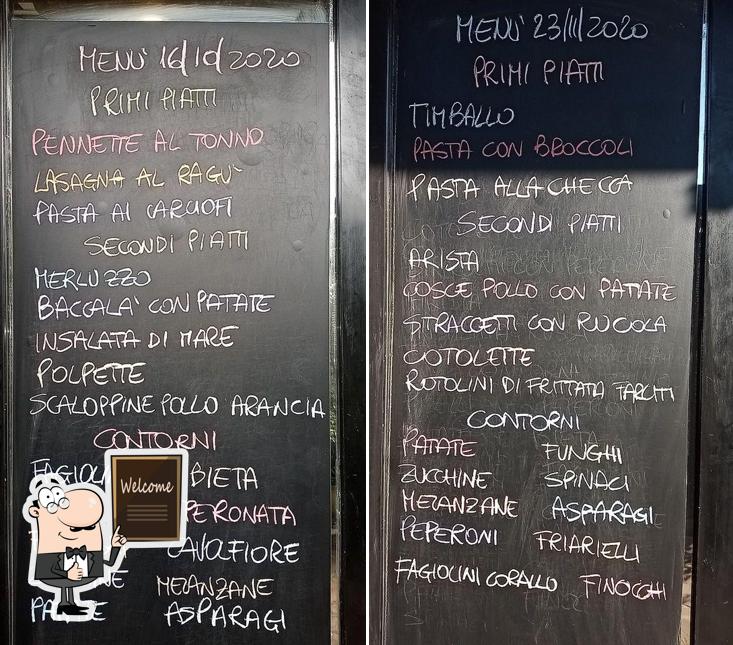 MENU' 16/10/2020
PRIMI PIATTI
PENNETTE AL TONNO
LASAGNA AL RAGU'
PASTA AI CARCIOFI
SECONDI PIATTI
MERLUZZO
BACCALA' CON PATATE
INSALATA DI MARE
POLPETTE
SCALOPPINE POLLO ARANCIA
CONTORNI
BIETA
Welcome
PERONATA
CAVOLFIORE
MELANZANE
ASPARAGI
MENU' 23/11/2020
PRIMI PIATTI
TIMBALLO
PASTA CON BROCCOLI
PASTA ALLA CHECCA
SECONDI PIATTI
ARISTA
COSCE POLLO CON PATATE
STRACCETTI CON RUCOLA
COTOLETTE
ROTOLINI DI FRITTATA FARCITI
CONTORNI
PATATE FUNGHI
ZUCCHINE SPINACI
MELANZANE ASPARAGI
PEPERONI FRIARIELLI
FAGIOLINI CORALLO FINOCCHI